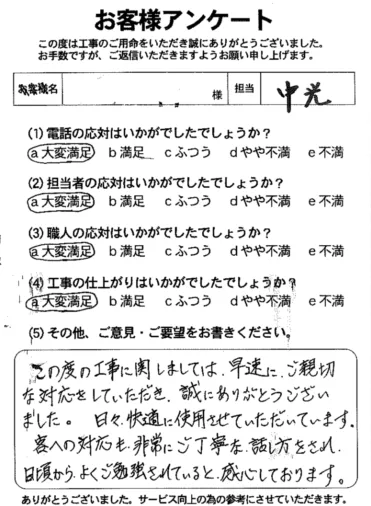 お客様アンケート
この度は工事のご用命をいただき誠にありがとうございました。
お手数ですが、ご返信いただきますようお願い申し上げます。
お客様名 様 担当 中光
(1) 電話の応対はいかがでしたでしょうか？
a 大変満足 b 満足 c ふつう d やや不満 e 不満
(2) 担当者の応対はいかがでしたでしょうか？
a 大変満足 b 満足 c ふつう d やや不満 e 不満
(3) 職人の応対はいかがでしたでしょうか？
a 大変満足 b 満足 c ふつう d やや不満 e 不満
(4) 工事の仕上がりはいかがでしたでしょうか？
a 大変満足 b 満足 c ふつう d やや不満 e 不満
(5) その他、ご意見・ご要望をお書きください。
この度の工事に関しましては、早速に、ご親切
な対応をしていただき、誠にありがとうござい
ました。 日々、快適に使用させていただいています。
客への対応も、非常にご丁寧な話し方をされ、
日頃から、よくご勉強されていると、感心しております。
ありがとうございました。サービス向上の為の参考にさせていただきます。